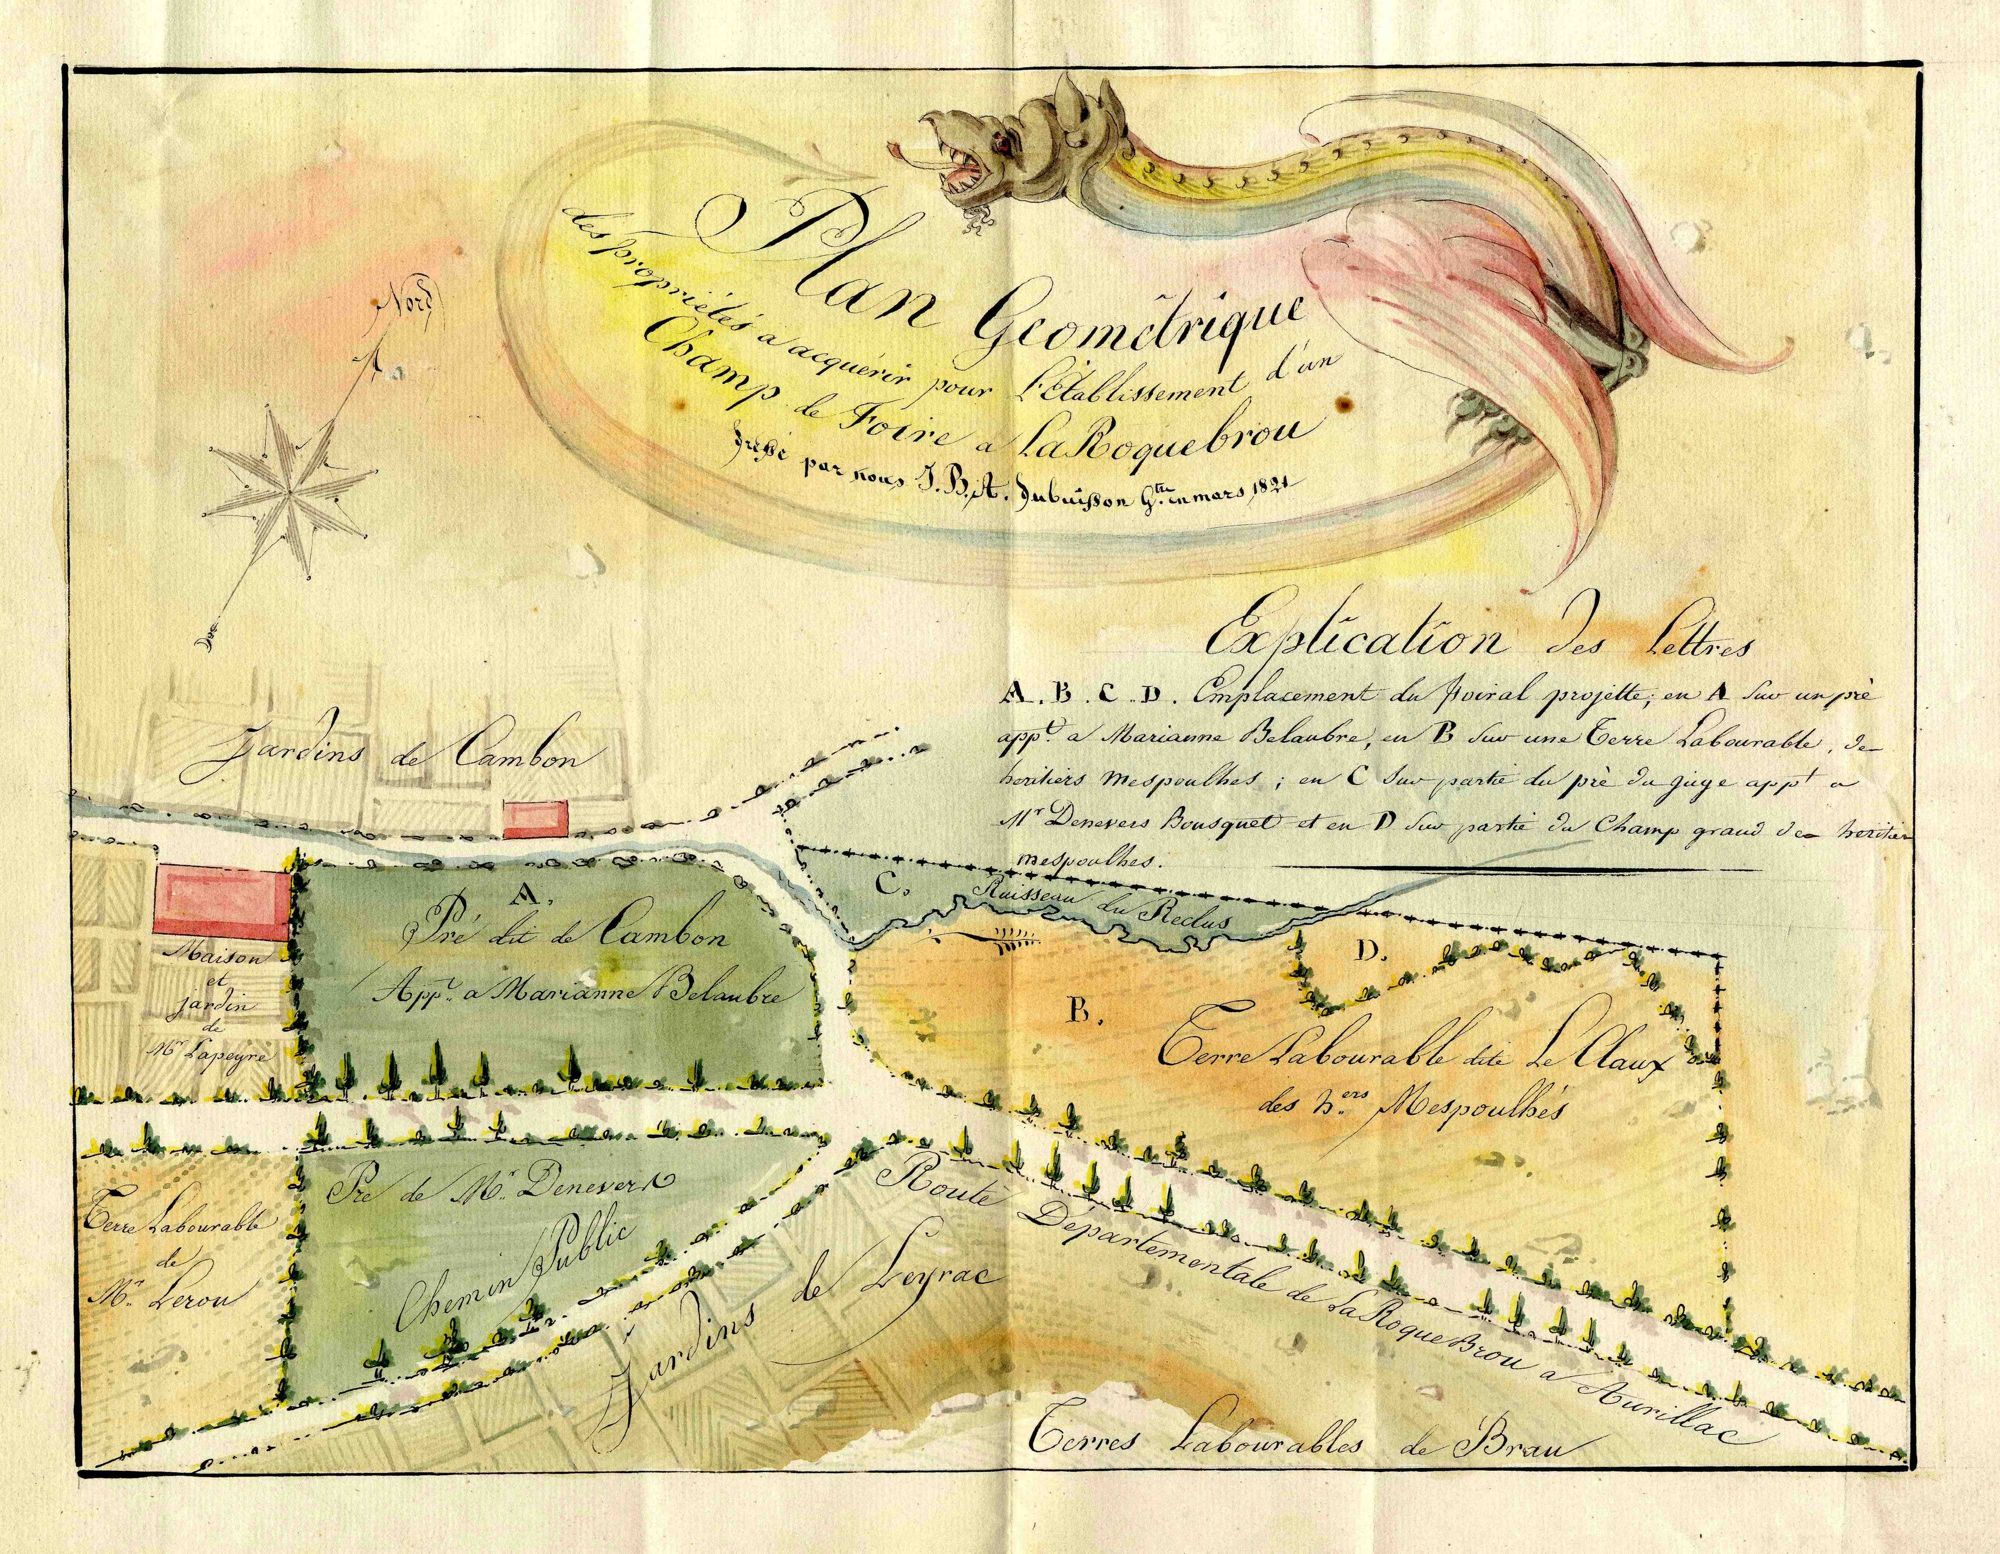 Plan Géométrique
des propriétés a acquérir pour L'Établissement d'un
Champ de Foire a La Roquebrou
dressé par nous J. B. A. dubuisson G.tre en mars 1821
Nord
Explication des Lettres
A. B. C. D. Emplacement du foiral projetté; en A sur un pré
app.t a Marianne Belaubre; en B sur une Terre Labourable, de
heritiers Mespoulhes; en C sur partie du pré du juge app.t a
M.r Denevers Bousquet et en D sur partie du Champ grand des heritiers
mespoulhes.
Jardins de Cambon
A.
Pré dit de Cambon
App.t a Marianne Belaubre
Maison
et
jardin
de
M.r Lapeyre
C.
Ruisseau du Reclus
D.
B.
Terre Labourable dite Le Claux
des h.ers Mespoulhés
Pré de M.r Denevers
Chemin Public
Terre Labourable
de
M.r Lerou
Jardins de Leyrac
Route Départementale de La Roque Brou a Aurillac
Terres Labourables de Brau